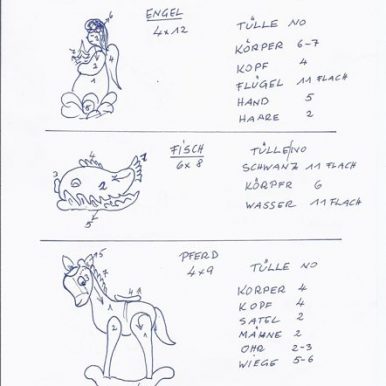 ENGEL
4x12
TÜLLE NO
KÖRPER 6-7
KOPF 4
FLÜGEL 11 FLACH
HAND 5
HAARE 2
FISCH
6x8
TÜLLE/NO
SCHWANZ 11 FLACH
KÖRPER 6
WASSER 11 FLACH
PFERD
4x9
TÜLLE NO
KÖRPER 4
KOPF 4
SATEL 2
MÄHNE 2
OHR 2-3
WIEGE 5-6